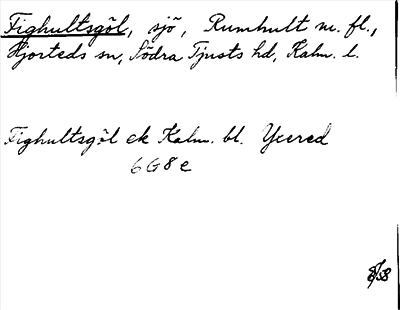 Fighultsgöl, sjö, Rumhult m. fl.,
Hjorteds sn, Södra Tjusts hd, Kalm. l.
Fighultsgöl ek Kalm. bl. Yxered
6G8e
8/58